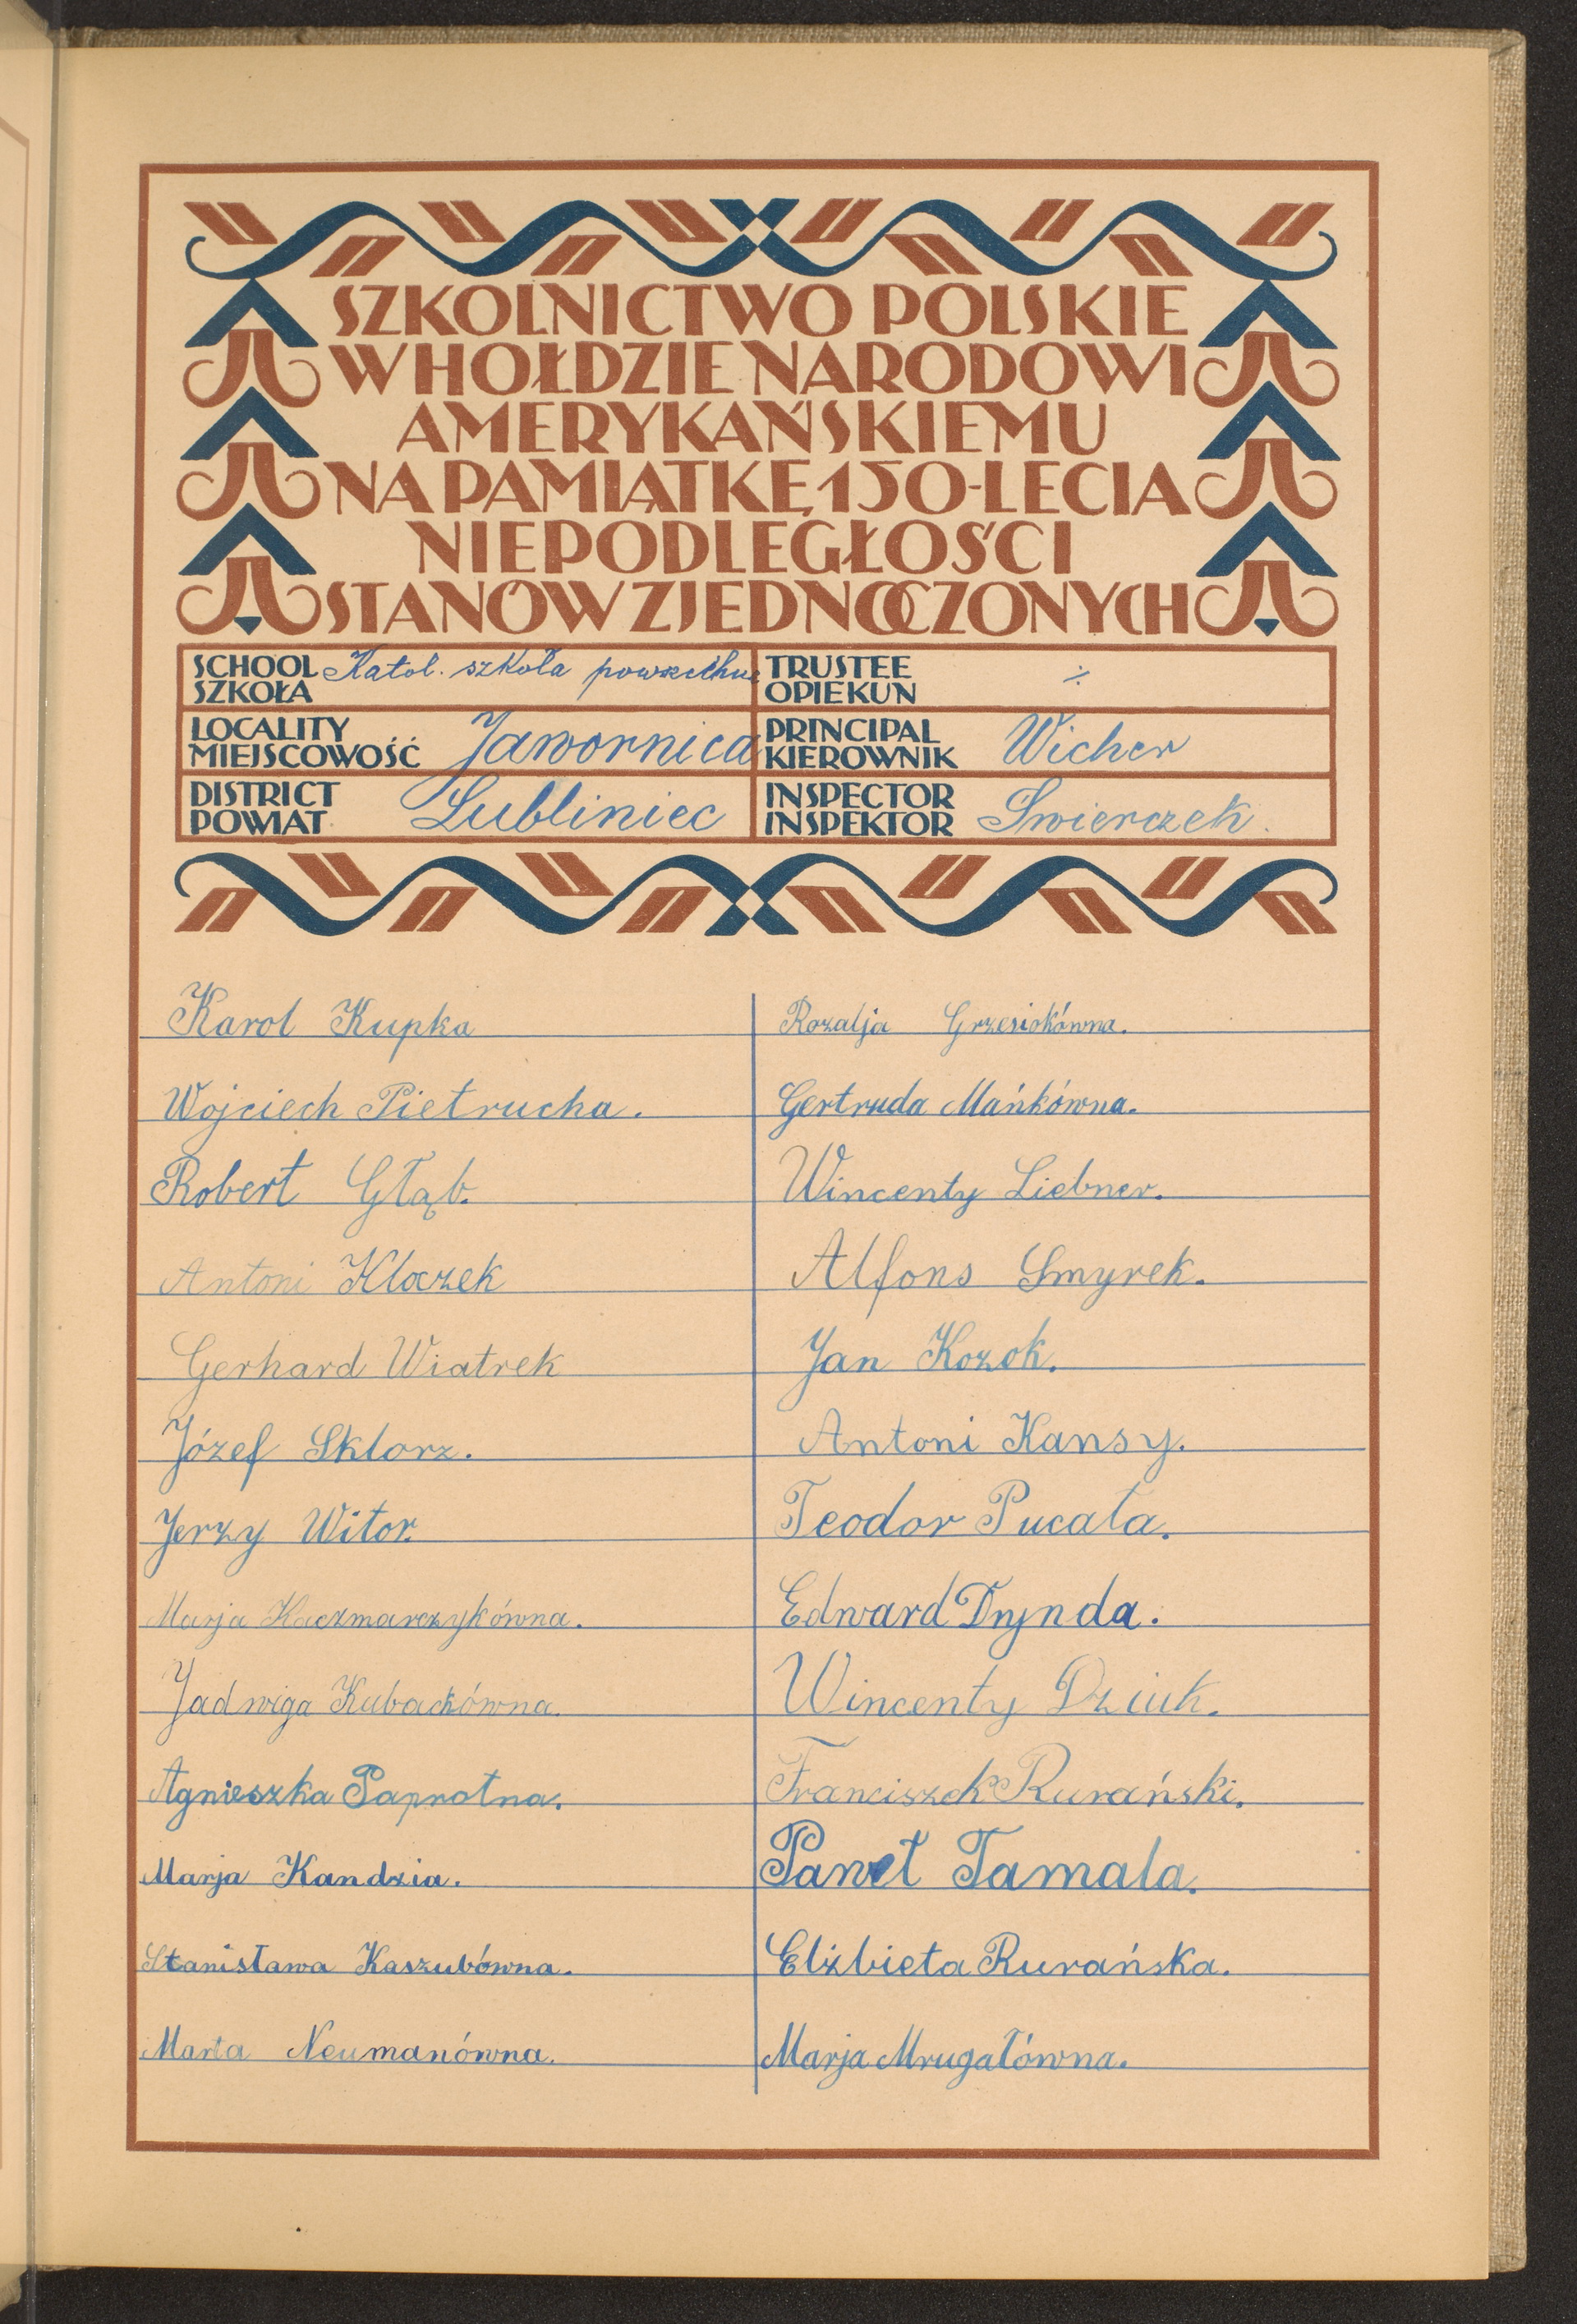 SZKOLNICTWO POLSKIE
W HOŁDZIE NARODOWI
AMERYKAŃSKIEMU
NA PAMIĄTKĘ 150-LECIA
NIEPODLEGŁOŚCI
STANÓW ZJEDNOCZONYCH
SCHOOL
SZKOŁA
Katol. szkoła
TRUSTEE
OPIEKUN
LOCALITY
MIEJSCOWOŚĆ
Jawornica
PRINCIPAL
KIEROWNIK
Wicher
DISTRICT
POWIAT
Lubliniec
INSPECTOR
INSPEKTOR
Świerczek.
Karol Kupka
Wojciech Pietrucha.
Robert Głąb.
Antoni Kloczek
Gerhard Wiatrek
Józef Sklorz.
Jerzy Witor.
Marja Kaczmarczykówna.
Jadwiga Kubackówna.
Agnieszka Paprotna.
Marja Kandzia.
Stanisława Kaszubówna.
Marta Neumanówna.
Rozalja Grzesiokówna.
Gertruda Mańkówna.
Wincenty Liebner.
Alfons Smyrek.
Jan Kozok.
Antoni Kansy.
Teodor Pucała.
Edward Drynda.
Wincenty Dziuk.
Franciszek Rurański.
Paweł Tamala.
Elżbieta Rurańska.
Marja Mrugałówna.